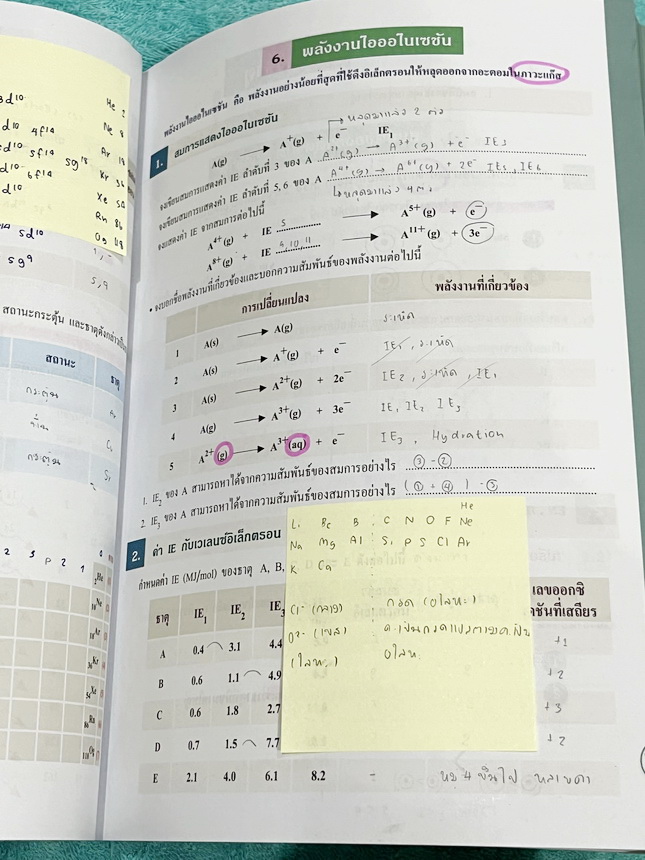 6. พลังงานไอออไนเซชัน
พลังงานไอออไนเซชัน คือ พลังงานอย่างน้อยที่สุดที่ใช้ดึงอิเล็กตรอนให้หลุดออกจากอะตอมในภาวะแก๊ส
1. สมการแสดงไอออไนเซชัน
หลุดมาแล้ว 2 ตัว
A(g) → A⁺(g) + e⁻ IE₁
จงเขียนสมการแสดงค่า IE ลำดับที่ 3 ของ A A²⁺(g) → A³⁺(g) + e⁻ IE₃
จงเขียนสมการแสดงค่า IE ลำดับที่ 5, 6 ของ A A⁴⁺(g) → A⁶⁺(g) + 2e⁻ IE₅, IE₆
จงแสดงค่า IE จากสมการต่อไปนี้
หลุดมาแล้ว 4 ตัว
A⁴⁺(g) + IE 5 → A⁵⁺(g) + e⁻
A⁸⁺(g) + IE 9, 10, 11 → A¹¹⁺(g) + 3e⁻
• จงบอกชื่อพลังงานที่เกี่ยวข้องและบอกความสัมพันธ์ของพลังงานต่อไปนี้
การเปลี่ยนแปลง พลังงานที่เกี่ยวข้อง
1 A(s) → A(g) ระเหิด
2 A(s) → A⁺(g) + e⁻ IE₁, ระเหิด
3 A(s) → A²⁺(g) + 2e⁻ IE₂, ระเหิด, IE₁
4 A(g) → A³⁺(g) + 3e⁻ IE₁ IE₂ IE₃
5 A²⁺(g) → A³⁺(aq) + e⁻ IE₃, Hydration
1. IE₂ ของ A สามารถหาได้จากความสัมพันธ์ของสมการอย่างไร ③ - ②
2. IE₃ ของ A สามารถหาได้จากความสัมพันธ์ของสมการอย่างไร (① + ④) - ③
2. ค่า IE กับเวเลนซ์อิเล็กตรอน
กำหนดค่า IE (MJ/mol) ของธาตุ A, B,
ธาตุ IE₁ IE₂ IE₃
เลขออกซิ
ชันที่เสถียร
A 0.4 3.1 4.4 +1
B 0.6 1.1 4.9 +2
C 0.6 1.8 2.7 +3
D 0.7 1.5 7.7 +2
E 2.1 4.0 6.1 8.2 - หมู่ 4 ขึ้นไป
He
Li Be B C N O F Ne
Na Mg Al Si P S Cl Ar
K Ca
He 2
Ne 8
Ar 18
Kr 36
Xe 54
Rn 86
Og 118
สถานะกระตุ้น และธาตุดังกล่าวเป็น
สถานะ ธาตุ
กระตุ้น
พื้น
กระตุ้น